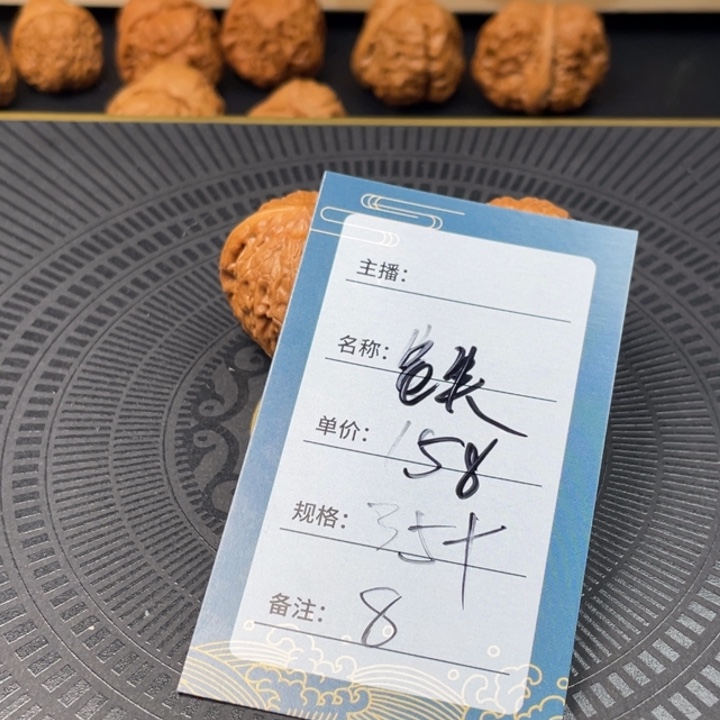 主播：
名称：
单价：158
规格：35+
备注：8